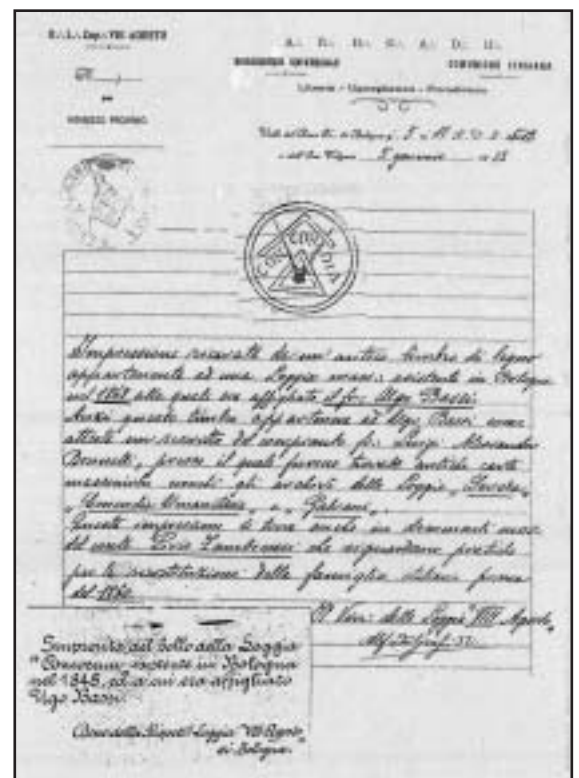 R∴ L∴ Cap∴ VIII AGOSTO
A∴ G∴ D∴ G∴ A∴ D∴ U∴
MASSONERIA UNIVERSALE COMUNIONE ITALIANA
Libertà - Uguaglianza - Fratellanza
INDIRIZZO PROFANO
Valle del Reno Or. di Bologna,
e dell'Era Volgare 5 gennaio
CONCORDIA
Impressione ricavata da un antico timbro di legno
appartenente ad una Loggia mass∴ esistente in Bologna
nel 1848 alla quale era affigliato il fr∴ Ugo Bassi.
Anzi questo timbro appartenne ad Ugo Bassi come
attesta un ricordo del compianto fr∴ Luigi Alessandro
presso il quale furono trovate antiche carte
massoniche nonché gli archivi delle Loggie "Severa"
"Concordia Umanitaria" e "Galvani".
Questa impressione si trova anche in documenti mass∴
del conte Livio Zambeccari che riguardano pratiche
per la ricostituzione della famiglia italiana prima
del 1860.
Il Ven∴ della Loggia "VIII Agosto"
Impronta del bollo della Loggia
"Concordia" esistente in Bologna
nel 1848, ed a cui era affigliato
Ugo Bassi.
Dono della Rispett∴ Loggia "VIII Agosto"
di Bologna.